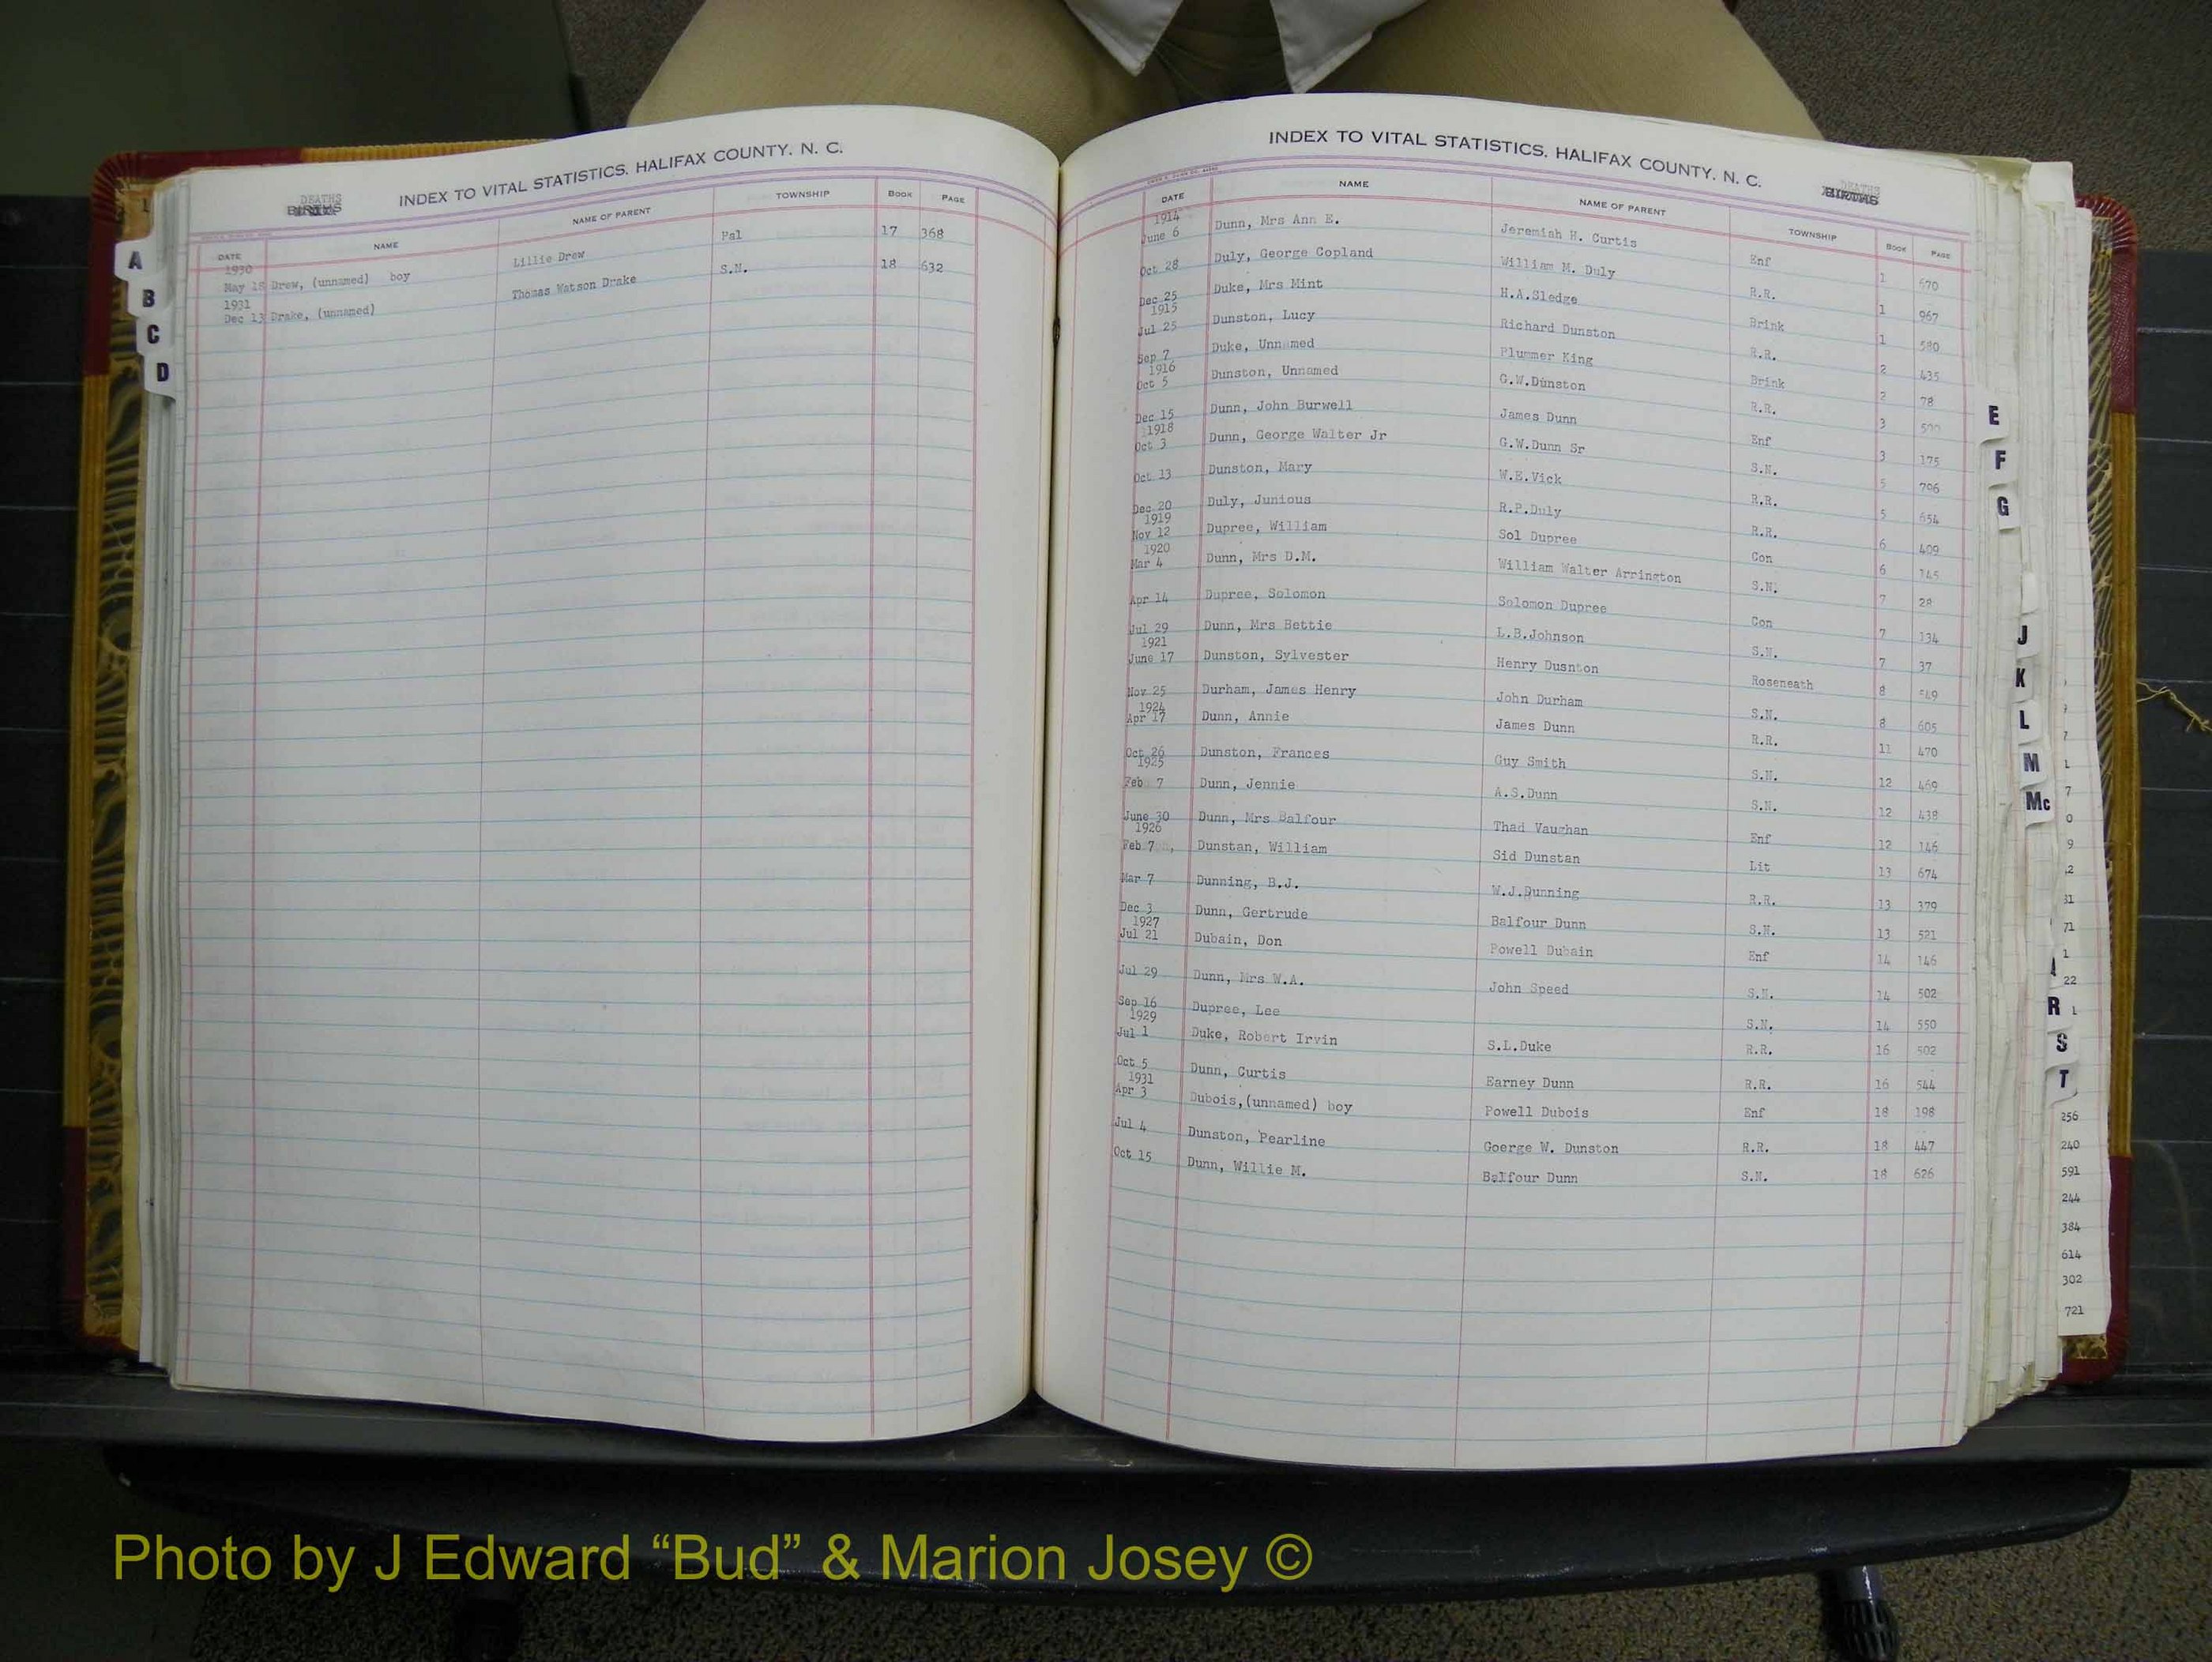 INDEX TO VITAL STATISTICS, HALIFAX COUNTY, N. C.
DEATHS
BIRTHS
DATE NAME NAME OF PARENT TOWNSHIP BOOK PAGE
1930
May 18 Drew, (unnamed) boy Lillie Drew Pal 17 368
1931
Dec 13 Drake, (unnamed) Thomas Watson Drake S.N. 18 632
A
B
C
D
INDEX TO VITAL STATISTICS, HALIFAX COUNTY, N. C.
DEATHS
BIRTHS
DATE NAME NAME OF PARENT TOWNSHIP BOOK PAGE
1914
June 6 Dunn, Mrs Ann E. Jeremiah H. Curtis Enf 1 670
Oct 28 Duly, George Copland William M. Duly R.R. 1 967
Dec 25 Duke, Mrs Mint H.A.Sledge Brink 1 580
1915
Jul 25 Dunston, Lucy Richard Dunston R.R. 2 435
Sep 7 Duke, Unnamed Plummer King Brink 2 78
1916
Oct 5 Dunston, Unnamed G.W.Dunston R.R. 3
Dec 15 Dunn, John Burwell James Dunn Enf 3 175
1918
Oct 3 Dunn, George Walter Jr G.W.Dunn Sr S.N. 5 706
Oct 13 Dunston, Mary W.E.Vick R.R. 5 654
Dec 20 Duly, Junious R.P.Duly R.R. 6 409
1919
Nov 12 Dupree, William Sol Dupree Con 6 145
1920
Mar 4 Dunn, Mrs D.M. William Walter Arrington S.N. 7 28
Apr 14 Dupree, Solomon Solomon Dupree Con 7 134
Jul 29 Dunn, Mrs Bettie L.B.Johnson S.N. 7 37
1921
June 17 Dunston, Sylvester Henry Dusnton Roseneath 8
Nov 25 Durham, James Henry John Durham S.N. 8 605
1924
Apr 17 Dunn, Annie James Dunn R.R. 11 470
Oct 26 Dunston, Frances Guy Smith S.N. 12 469
1925
Feb 7 Dunn, Jennie A.S.Dunn S.N. 12 438
June 30 Dunn, Mrs Balfour Thad Vaughan Enf 12 146
1926
Feb 7 Dunstan, William Sid Dunstan Lit 13 674
Mar 7 Dunning, B.J. W.J.Dunning R.R. 13 379
Dec 3 Dunn, Gertrude Balfour Dunn S.N. 13 521
1927
Jul 21 Dubain, Don Powell Dubain Enf 14 146
Jul 29 Dunn, Mrs W.A. John Speed S.N. 14 502
Sep 16 Dupree, Lee S.N. 14 550
1929
Jul 1 Duke, Robert Irvin S.L.Duke R.R. 16 502
Oct 5 Dunn, Curtis Earney Dunn R.R. 16 544
1931
Apr 3 Dubois,(unnamed) boy Powell Dubois Enf 18 198
Jul 4 Dunston, Pearline Goerge W. Dunston R.R. 18 447
Oct 15 Dunn, Willie M. Balfour Dunn S.N. 18 626
E
F
G
J
K
L
M
Mc
R
S
T
256
240
591
244
384
614
302
721
Photo by J Edward “Bud” & Marion Josey ©